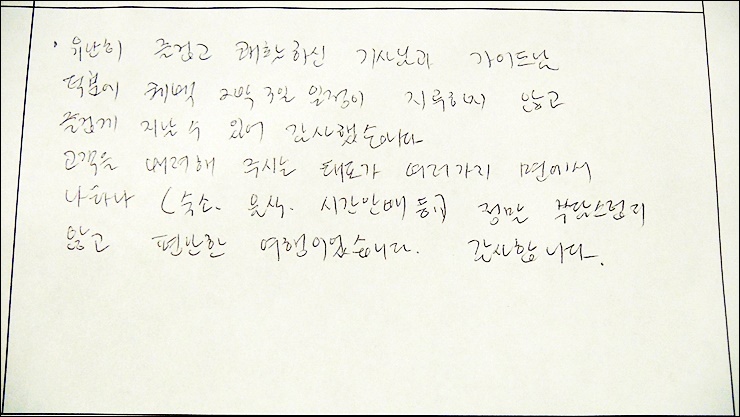 · 유난히 즐겁고 쾌활하신 기사님과 가이드님
덕분에 2박 3일 일정이 지루하지 않고
즐겁게 지날 수 있어 감사했습니다
고객을 배려해 주시는 태도가 여러가지 면에서
나타나 (숙소. 음식. 시간안배 등) 정말 부담스럽지
않고 편안한 여행이었습니다. 감사합니다.